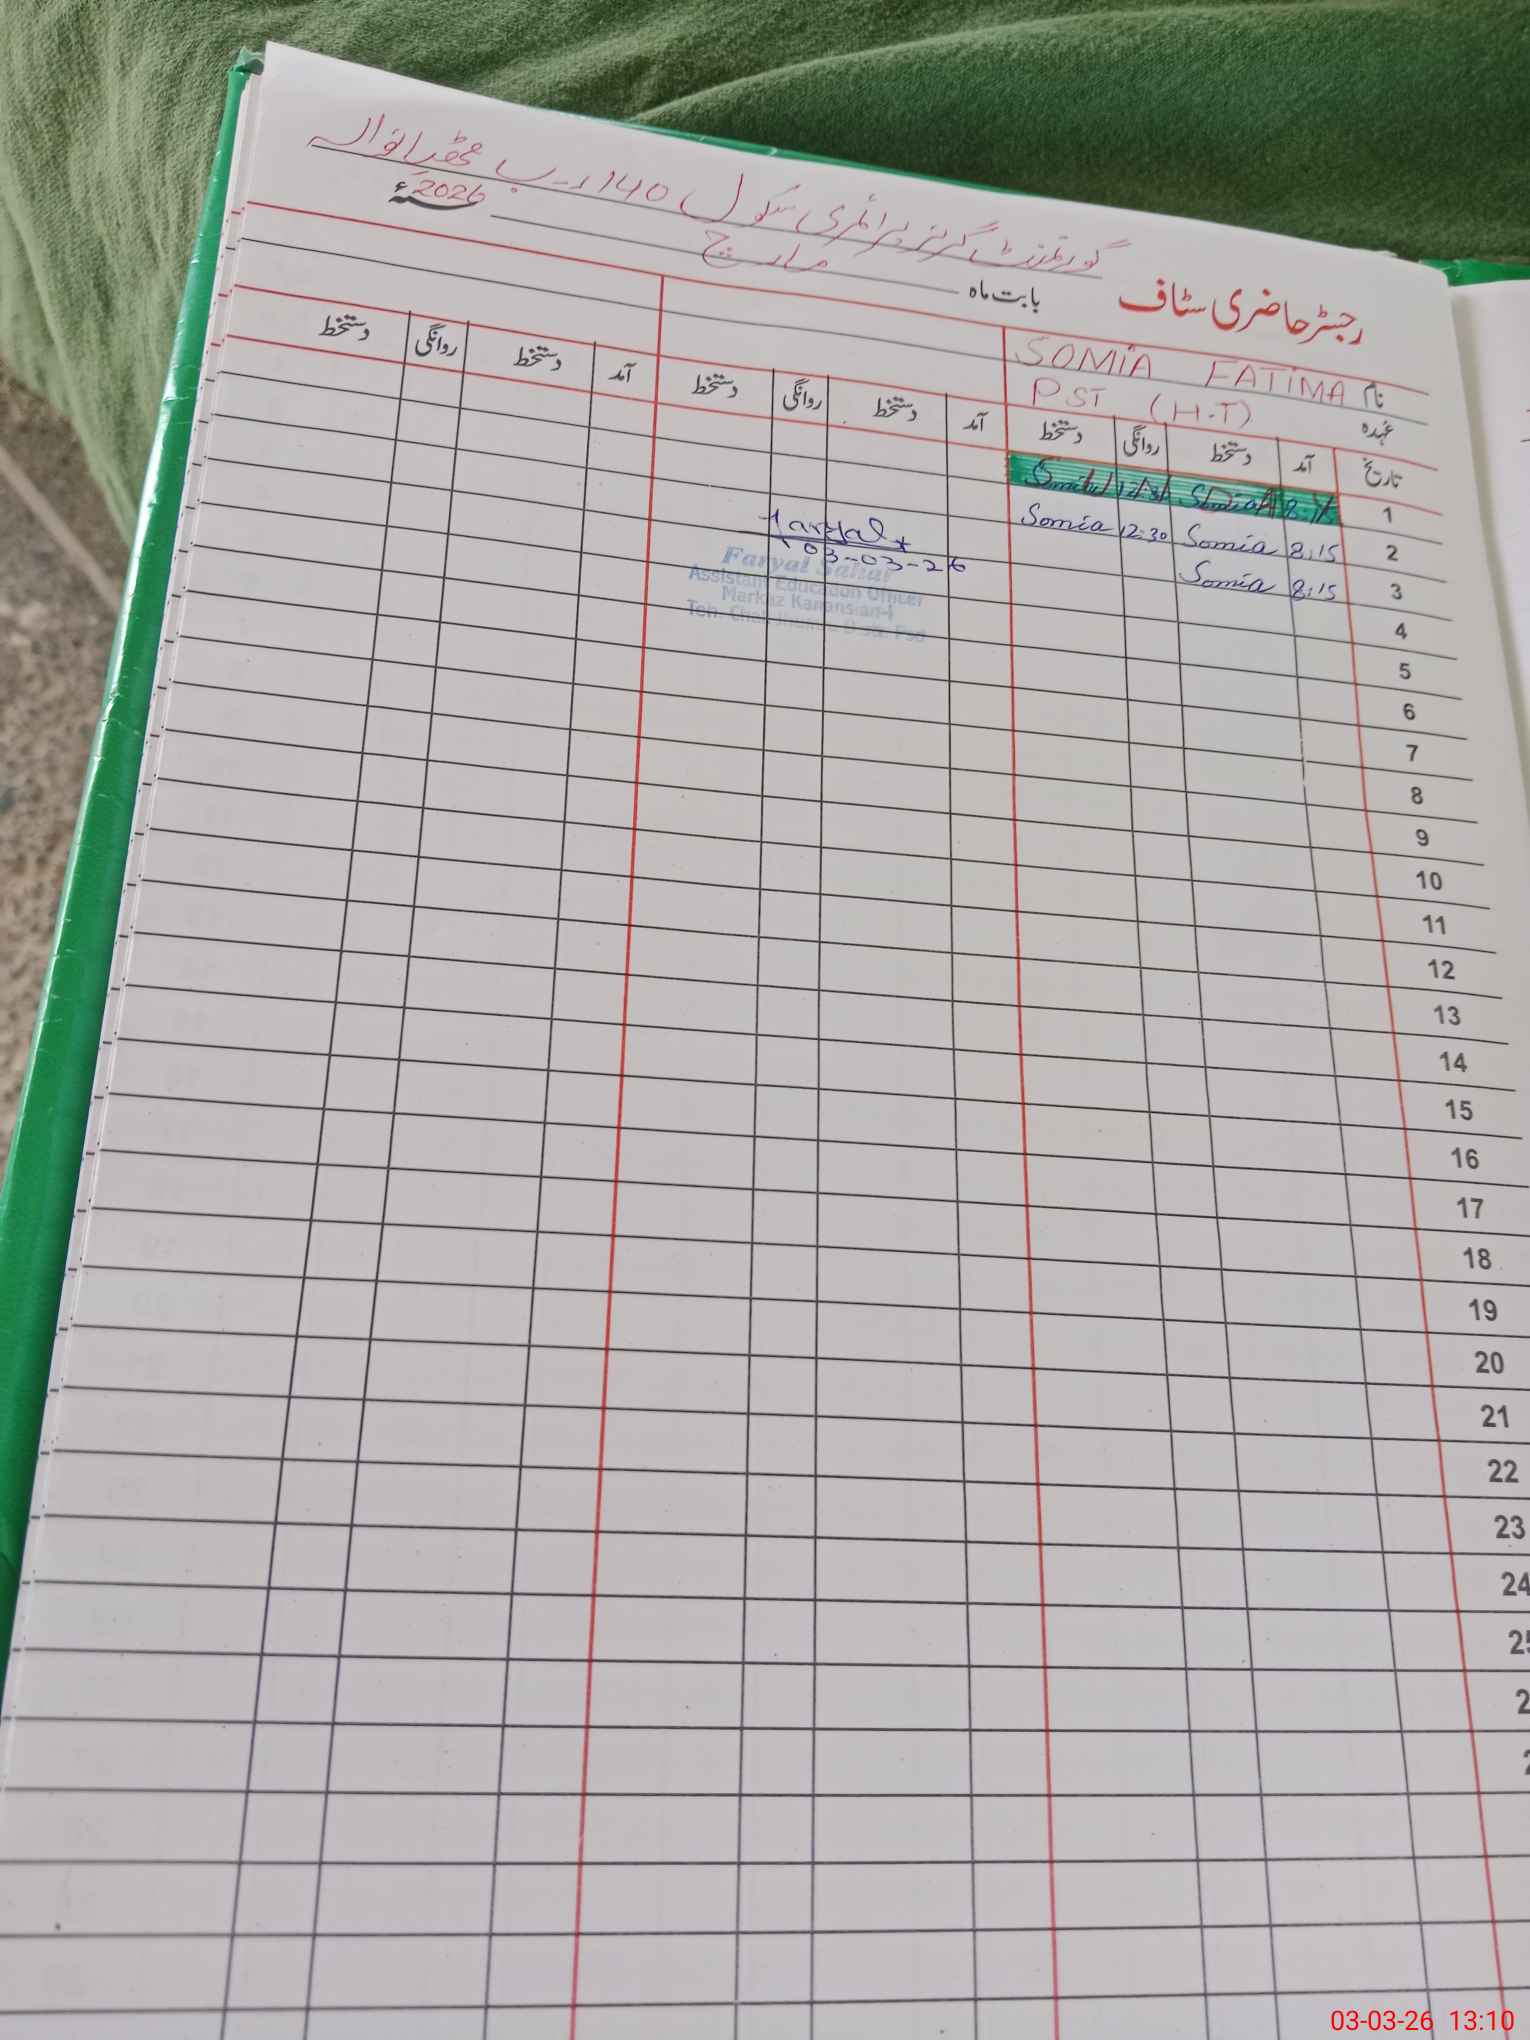 گورنمنٹ گرلز پرائمری سکول 140 ر-ب
2026ء
رجسٹر حاضری سٹاف بابت ماہ مارچ
نام SOMIA FATIMA
عہدہ PST (H-T)
تاریخ آمد دستخط روانگی دستخط آمد دستخط روانگی دستخط آمد دستخط روانگی دستخط
1 8:15
2 8:15 Somia 12:30 Somia
3 8:15 Somia
Faryal
03-03-26
Faryal Sahar
Assistant Education Officer
Markaz
4
5
6
7
8
9
10
11
12
13
14
15
16
17
18
19
20
21
22
23
24
03-03-26 13:10